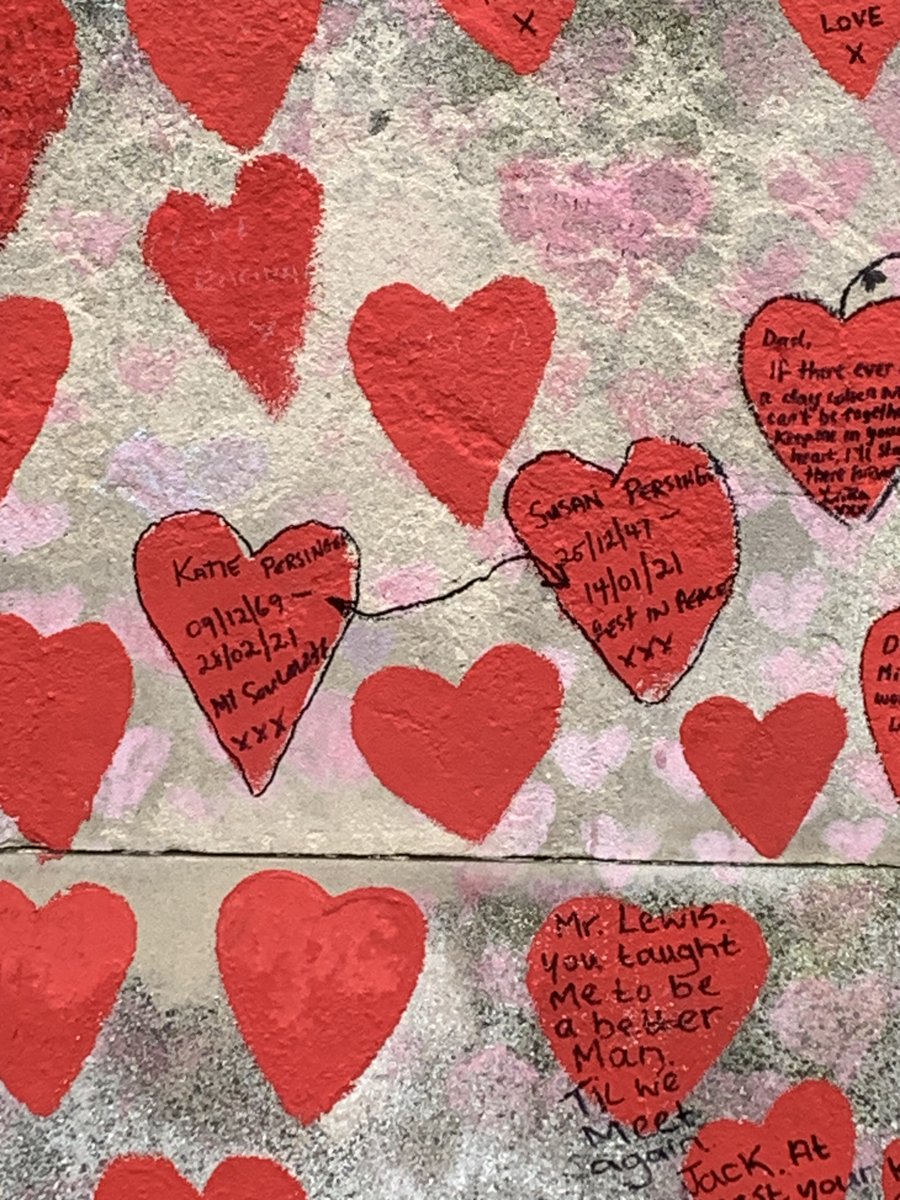 X
LOVE
X
Dad,
If there ever
a day when
can't be together
Keep me in your
heart, I'll
there
xxx
SUSAN PERSINGER
25/12/47 –
14/01/21
REST IN PEACE
xxx
KATIE PERSINGER
09/12/69 –
28/02/21
MY SOULMATE
xxx
D
Mi
Mr. Lewis.
you taught
me to be
a better
Man.
TIL we
Meet
again
Jack. At
your